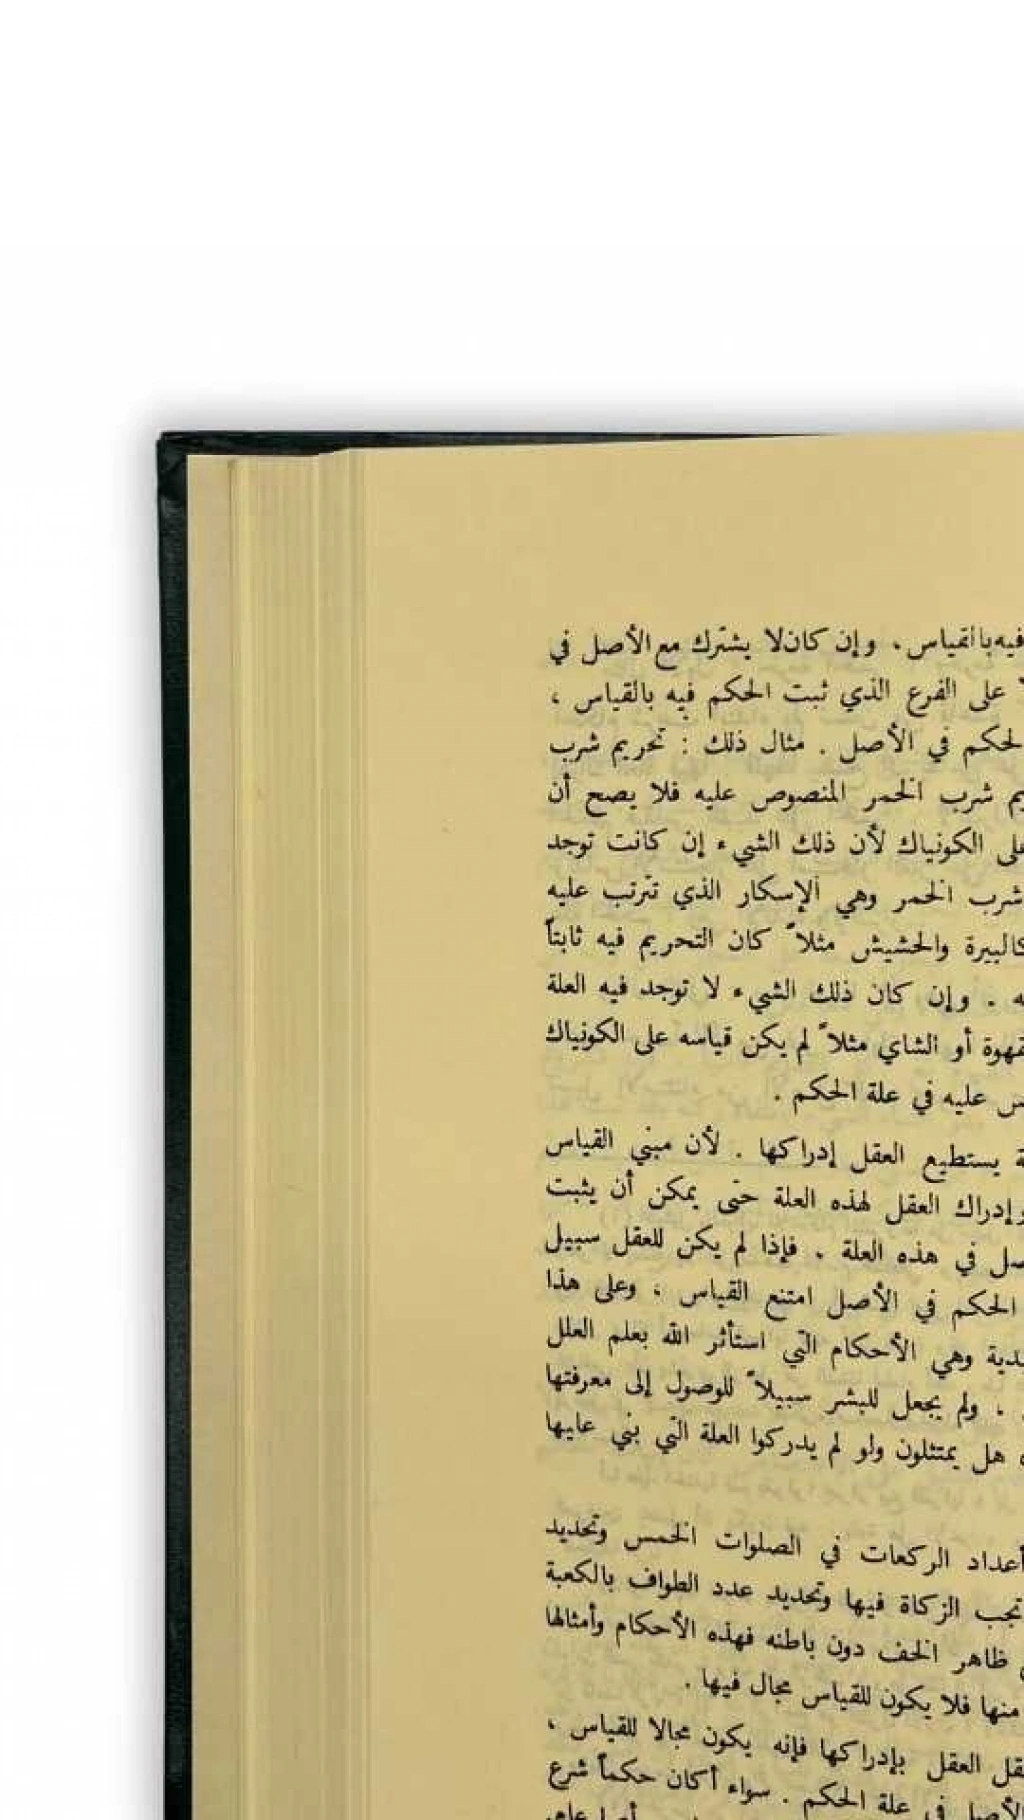 فيه بالقياس. وإن كان لا يشترك مع الأصل في
على الفرع الذي ثبت الحكم فيه بالقياس ،
الحكم في الأصل . مثال ذلك : تحريم شرب
شرب الخمر المنصوص عليه فلا يصح أن
على الكونياك لأن ذلك الشيء إن كانت توجد
شرب الخمر وهي الإسكار الذي تترتب عليه
كالبيرة والحشيش مثلاً كان التحريم فيه ثابتاً
. وإن كان ذلك الشيء لا توجد فيه العلة
أو الشاي مثلاً لم يكن قياسه على الكونياك
عليه في علة الحكم .
يستطيع العقل إدراكها . لأن مبني القياس
وإدراك العقل لهذه العلة حتى يمكن أن يثبت
في هذه العلة . فإذا لم يكن للعقل سبيل
الحكم في الأصل امتنع القياس ، وعلى هذا
وهي الأحكام التي استأثر الله بعلم العلل
، ولم يجعل للبشر سبيلاً للوصول إلى معرفتها
هل يمتثلون ولو لم يدركوا العلة التي بني عليها
أعداد الركعات في الصلوات الخمس وتحديد
تجب الزكاة فيها وتحديد عدد الطواف بالكعبة
ظاهر الخف دون باطنه فهذه الأحكام وأمثالها
منها فلا يكون للقياس مجال فيها .
العقل بإدراكها فإنه يكون مجالا للقياس ،
في علة الحكم . سواء أكان حكماً شرع